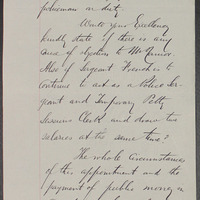 policeman on duty.
Would your Excellency
kindly state if there is any
cause of objection to Mr
Also if Sergeant French is to
continue to act as a Police Ser
geant and Temporary Petty
Sessions Clerk and draw two
salaries at the same time?
The whole circumstances
of this appointment and the
payment of public money in